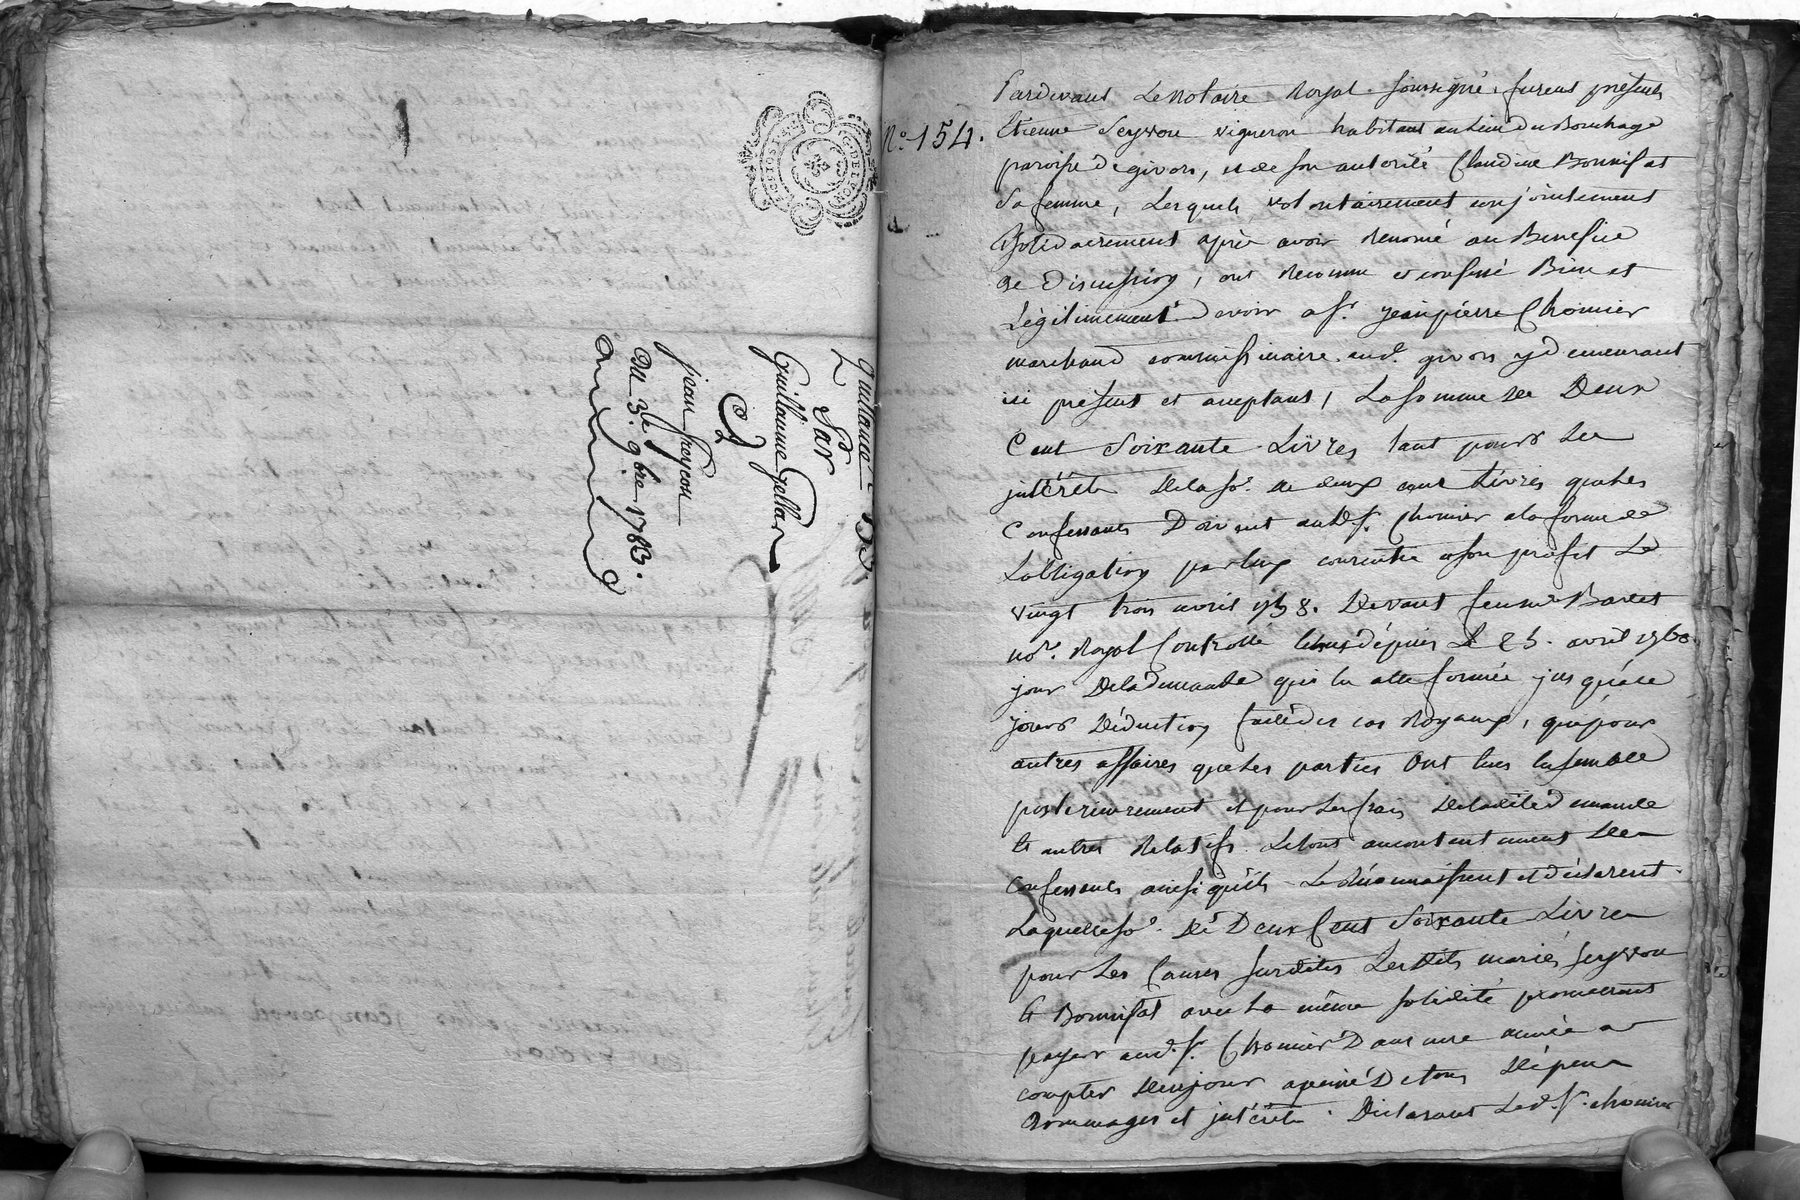 quittance 153.
Par
Guillaume Gellas
A
jean freycon
du 3.e 9bre 1783.
G.DE LYON
N.o 154.
Pardevant Le Notaire Royal soussigné, furent présents
Etienne Seyvou vigneron habitant au lieu du Bouchage
paroisse de givors, et de son autorité Claudine Bonnifat
Sa femme, Lesquels volontairement conjointement
Solidairement après avoir Renoncé au Benefice
de Discussion, ont Reconnu et confessé Bien et
Légitimement devoir a Sr. jean pierre Chomier
marchand commissionaire aud. givors y demeurant
ici présent et acceptant, La somme de Deux
Cent Soixante Livres tant pour Les
jntérêts de la So. de deux cent Livres que Les
Confessants Doivent aud. Sr. Chomier a la forme de
L'obligation par eux consentie a son profit Le
vingt trois avril 1758. Devant feu me Baret
nore. Royal Controllé depuis Le 25. avril 1760.
jour de la demande qui en a été formée jusqu'à ce
jour Déduction faite des cas Royaux, que pour
autres affaires que Les parties Ont eues Ensemble
posterieurement et pour Les frais de la dite Demande
Et autres Relatifs. Le tout au contentement des
Confessants ainsi qu'ils Le Réconnaissent et déclarent.
Laquelle So. de Deux Cent Soixante Livres
pour Les Causes Susdites Lesdits mariés Seyvou
Et Bonnifat avec La même Solidité promettent
payer aud. Sr. Chomier Dans une année a
compter de ce jour a peine De tous Dépens
Dommages et jntérêts. Déclarant Led. Sr. chomier